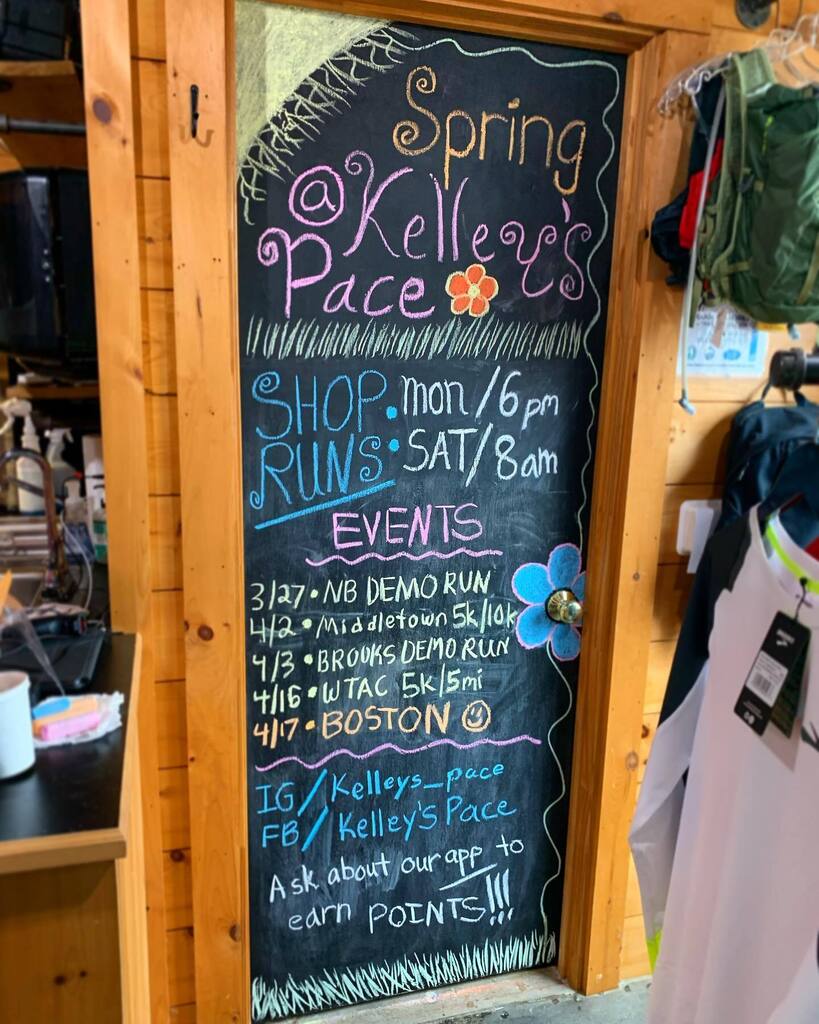 Spring
@Kelley's
Pace
SHOP • mon/6pm
RUNS • SAT/8am
EVENTS
3/27 • NB DEMO RUN
4/2 • Middletown 5k/10k
4/3 • BROOKS DEMO RUN
4/16 • WTAC 5k/5mi
4/17 • BOSTON
IG/Kelleys_pace
FB/Kelley's Pace
Ask about our app to
earn POINTS!!!